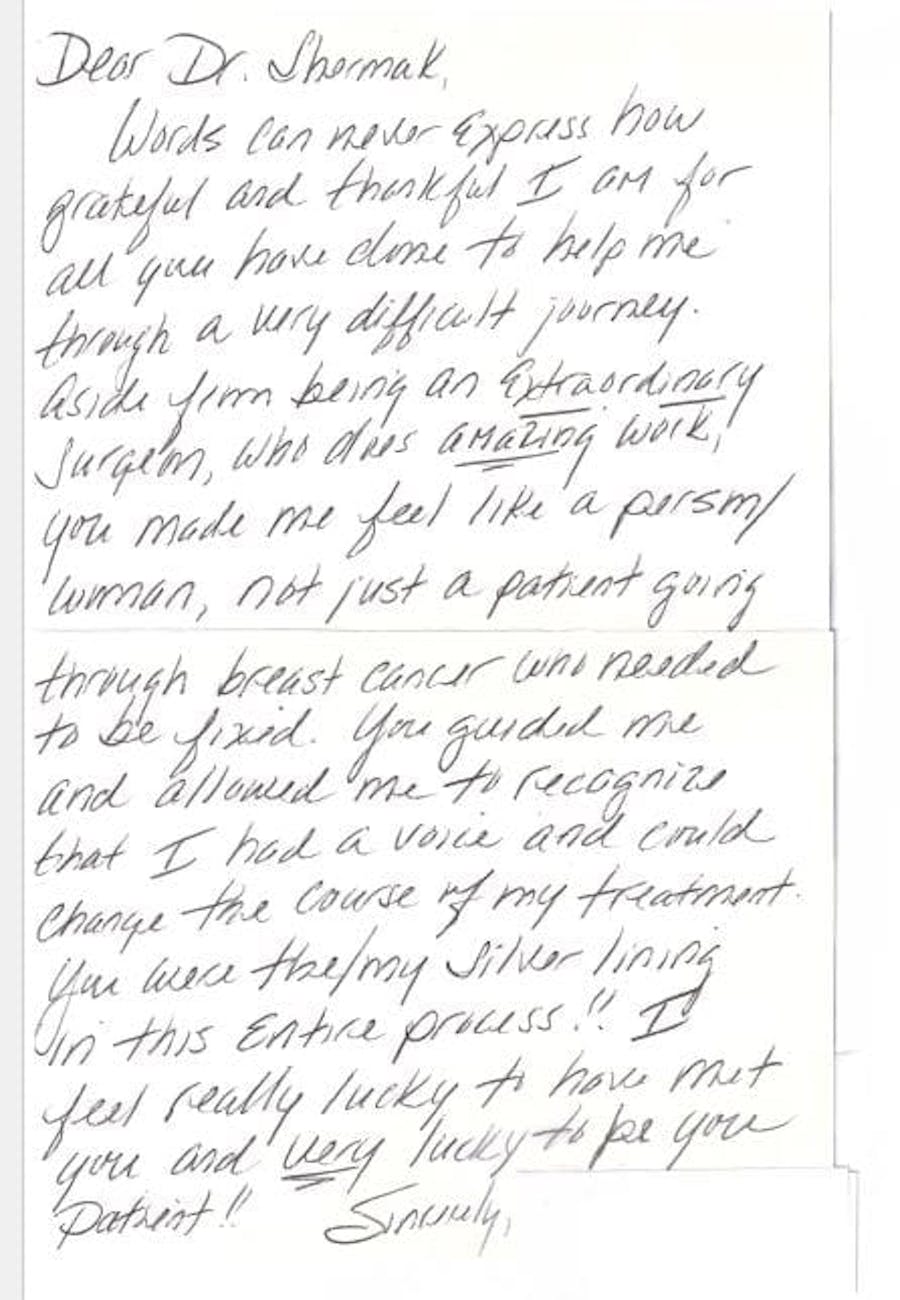 Dear Dr. Shermak,
Words can never Express how
grateful and thankful I am for
all you have done to help me
through a very difficult journey.
Aside from being an Extraordinary
Surgeon, who does amazing work,
you made me feel like a person/
woman, not just a patient going
through breast cancer who needed
to be fixed. You guided me
and allowed me to recognize
that I had a voice and could
change the course of my treatment.
You were the/my silver lining
in this Entire process!! I
feel really lucky to have met
you and very lucky to be you
patient!! Sincerely,